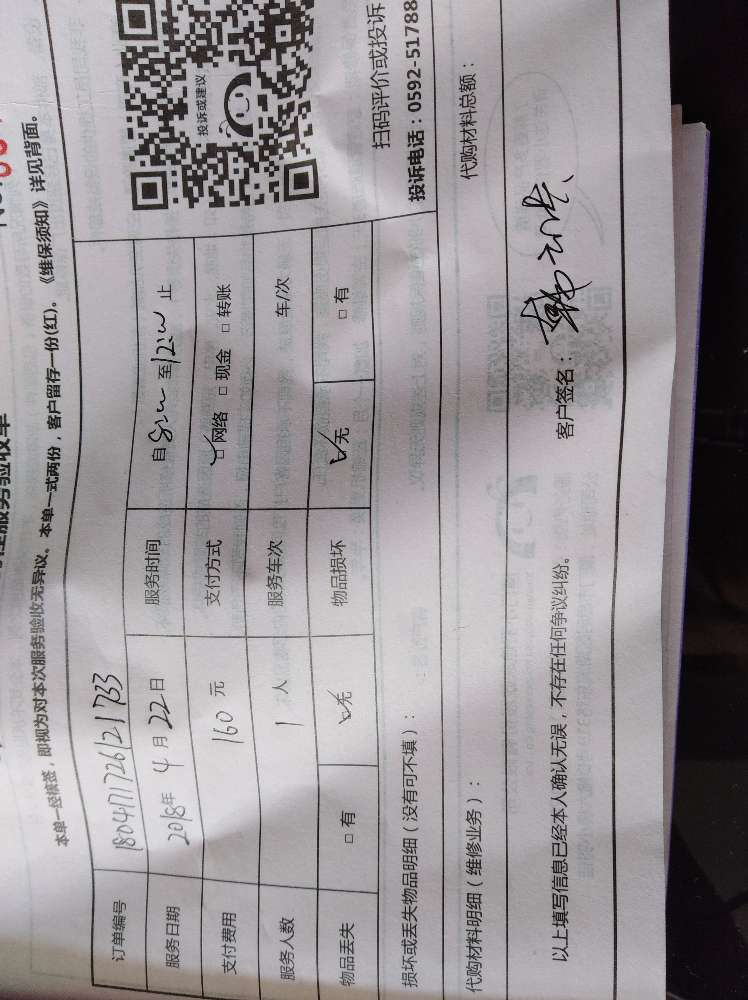 服务验收单
本单一经核签，即视为对本次服务验收无异议。本单一式两份，客户留存一份(红)。《维保须知》详见背面。
订单编号 180417172612733
服务日期 2018年 4 月 22 日 服务时间 自 至 止
支付费用 160 元 支付方式 ☑网络 □ 现金 □ 转账
服务人数 1 人 服务车次 车/次
物品丢失 □ 有 ☑无 物品损坏 ☑无 □ 有
投诉或建议
扫码评价或投诉
投诉电话：0592-51788
损坏或丢失物品明细（没有可不填）：
代购材料明细（维修业务）： 代购材料总额：
以上填写信息已经本人确认无误，不存在任何争议纠纷。 客户签名：